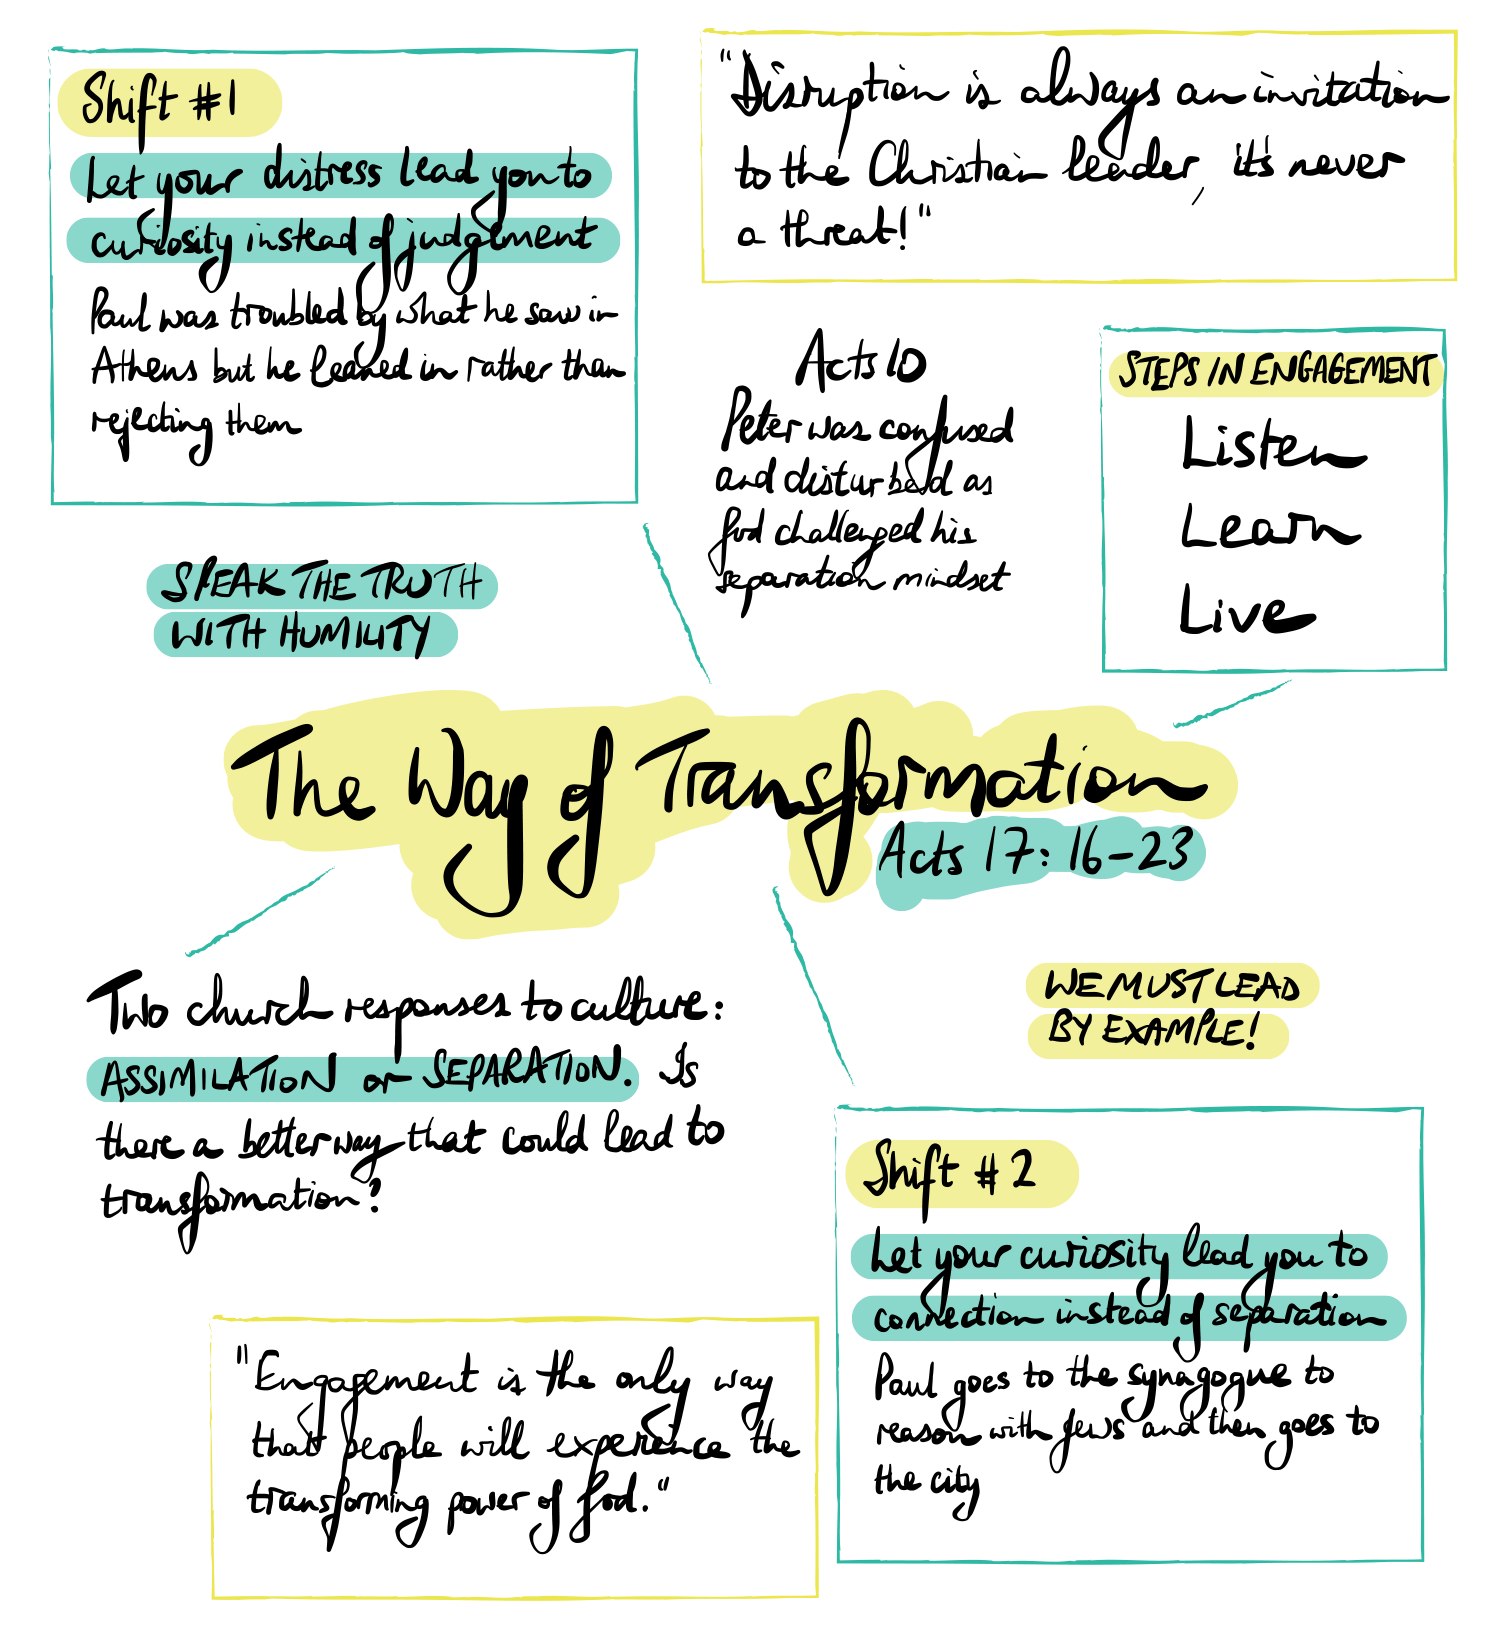 Shift #1
Let your distress lead you to
curiosity instead of judgement
Paul was troubled by what he saw in
Athens but he leaned in rather than
rejecting them
"Disruption is always an invitation
to the Christian leader, it's never
a threat!"
Acts 10
Peter was confused
and disturbed as
God challenged his
separation mindset
STEPS IN ENGAGEMENT
Listen
Learn
Live
SPEAK THE TRUTH
WITH HUMILITY
The Way of Transformation
Acts 17:16-23
Two church responses to culture:
ASSIMILATION or SEPARATION. Is
there a better way that could lead to
transformation?
WE MUST LEAD
BY EXAMPLE!
Shift #2
Let your curiosity lead you to
connection instead of separation
Paul goes to the synagogue to
reason with Jews and then goes to
the city
"Engagement is the only way
that people will experience the
transforming power of God."